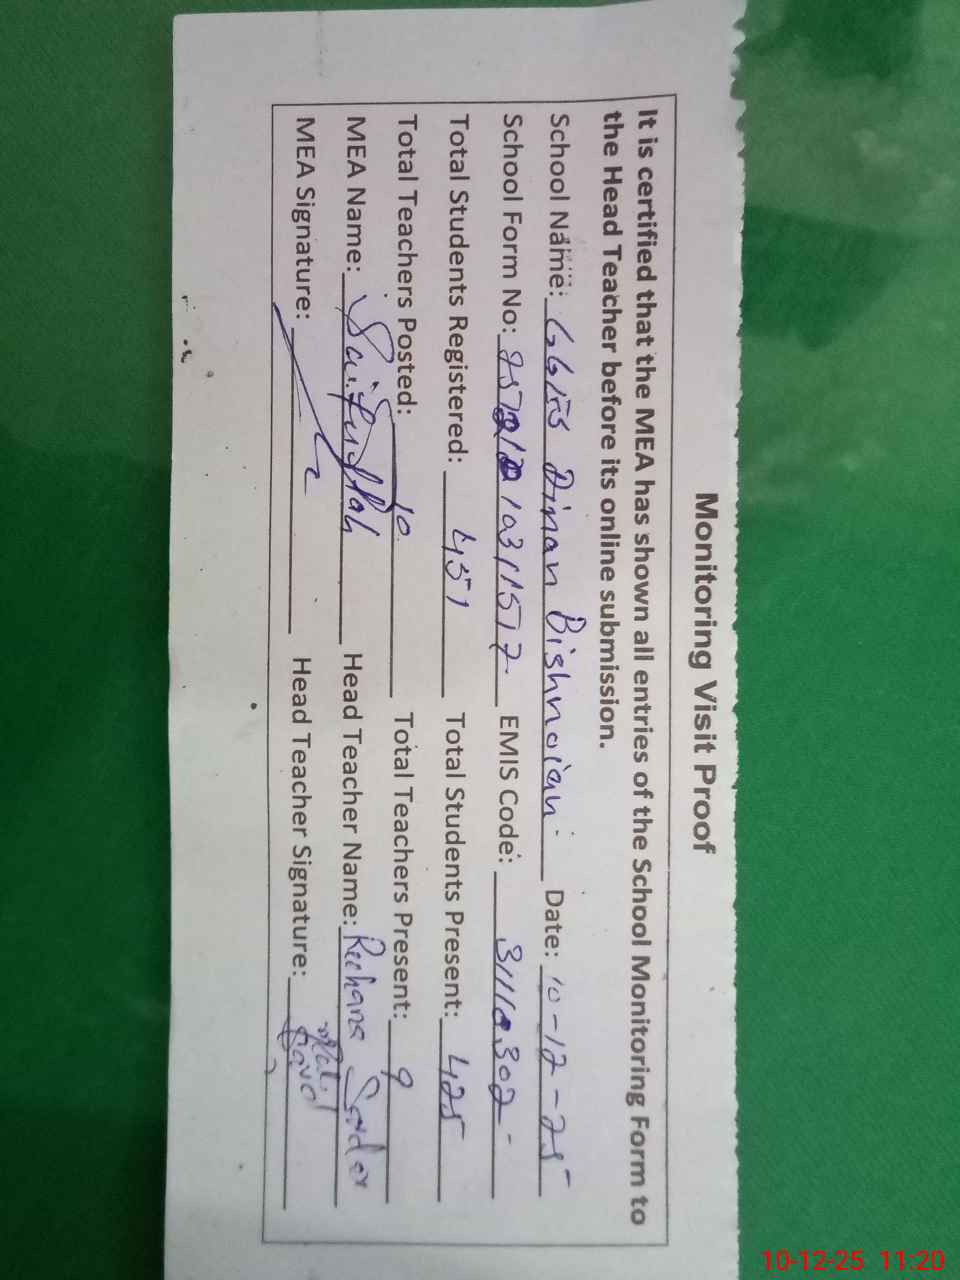 Monitoring Visit Proof
It is certified that the MEA has shown all entries of the School Monitoring Form to
the Head Teacher before its online submission.
School Name: GGHS Dinan Bishnoian Date: 10-12-25
School Form No: EMIS Code: 31110302
Total Students Registered: 451 Total Students Present: 425
Total Teachers Posted: 10 Total Teachers Present: 9
MEA Name: Saifullah Head Teacher Name: Reehana
MEA Signature: Head Teacher Signature:
10-12-25 11:20